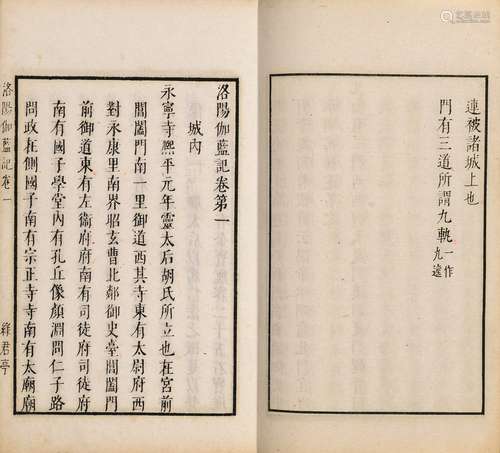 連被諸城上也
門有三道所謂九軌一作九逵
洛陽伽藍記卷第一
城內
永寧寺熙平元年靈太后胡氏所立也在宮前
閶闔門南一里御道西其寺東有太尉府西
對永康里南界昭玄曹北鄰御史臺閶闔門
前御道東有左衞府府南有司徒府司徒府
南有國子學堂內有孔丘像顏淵問仁子路
問政在側國子南有宗正寺寺南有太廟廟
洛陽伽藍記卷一
綠君亭